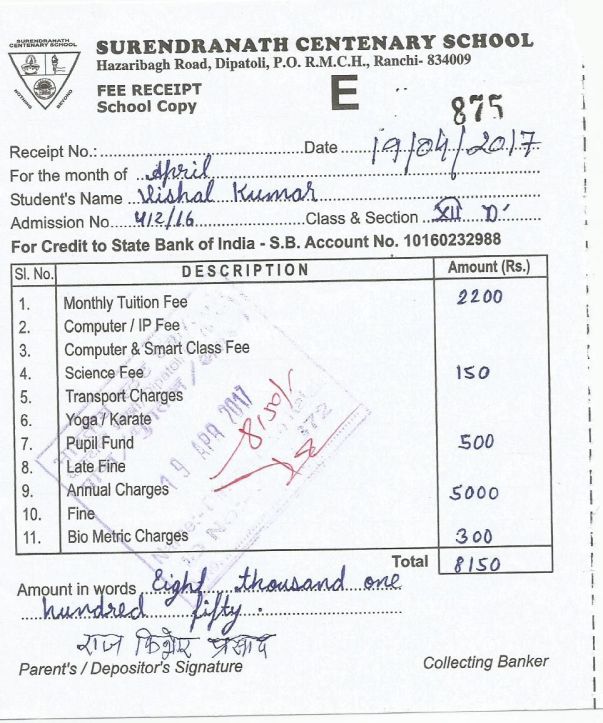 SURENDRANATH
CENTENARY SCHOOL
NOTHING BEYOND
SURENDRANATH CENTENARY SCHOOL
Hazaribagh Road, Dipatoli, P.O. R.M.C.H., Ranchi- 834009
FEE RECEIPT E
School Copy 875
Receipt No.: Date 19/04/2017
For the month of April
Student's Name Vishal Kumar
Admission No. 412/16 Class & Section XII 'D'
For Credit to State Bank of India - S.B. Account No. 10160232988
Sl. No. DESCRIPTION Amount (Rs.)
1. Monthly Tuition Fee 2200
2. Computer / IP Fee
3. Computer & Smart Class Fee
4. Science Fee 150
5. Transport Charges
6. Yoga / Karate
7. Pupil Fund 500
8. Late Fine
9. Annual Charges 5000
10. Fine
11. Bio Metric Charges 300
19 APR 2017
8150/-
Total 8150
Amount in words Eight thousand one
hundred fifty.
राज किशोर प्रसाद
Parent's / Depositor's Signature Collecting Banker